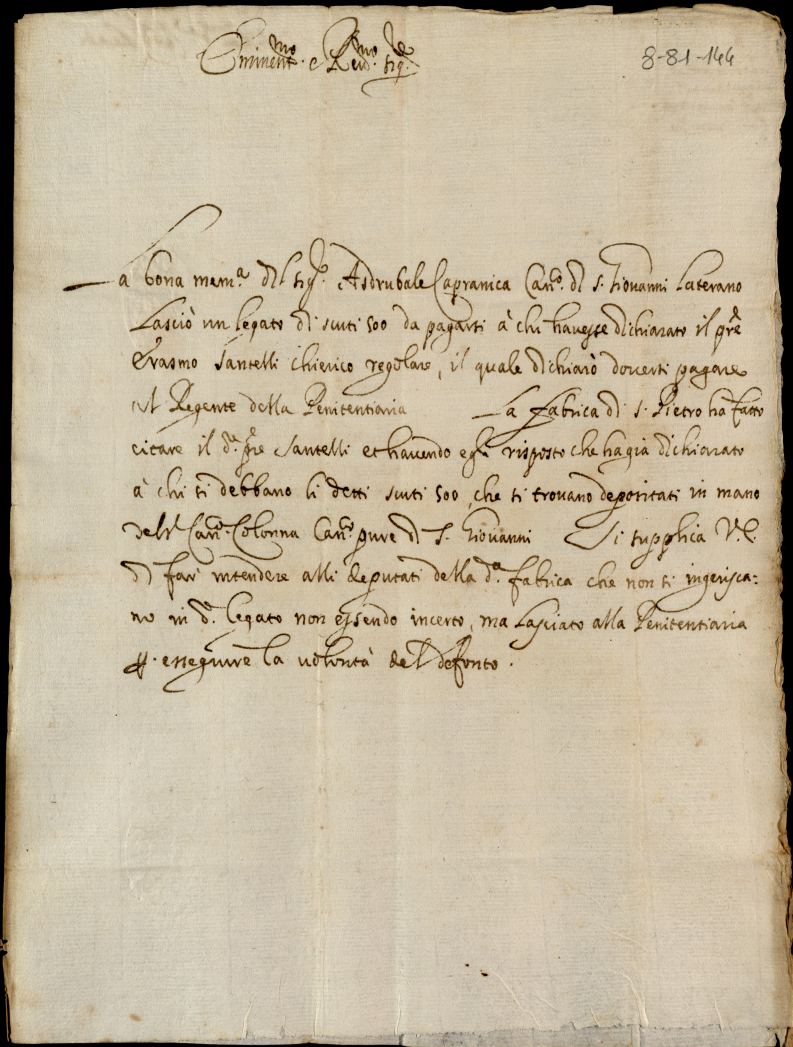 Eminent.mo e Reu.mo Sig.re
8-81-144
La bona mem.a del Sig.re Asdrubale Capranica Can.co di S. Giovanni Laterano
Lasciò un legato di scuti 500 da pagarsi à chi havesse dichiarato il pre
Erasmo Santelli Chierico regolare, il quale dichiarò doversi pagare
al Regente della Penitentiaria La fabrica di S. Pietro ha fatto
citare il d.o pre Santelli et havendo egli risposto che ha già dichiarato
à chi si debbano li detti scuti 500, che si trovano depositati in mano
del Colonna Can.co pure di S. Giovanni Si supplica V.E.
di far intendere alli deputati della d.a fabrica che non si ingerisca=
no in d.o legato non essendo incerto, ma lasciato alla Penitentiaria
p. esseguire la volontà del defonto.